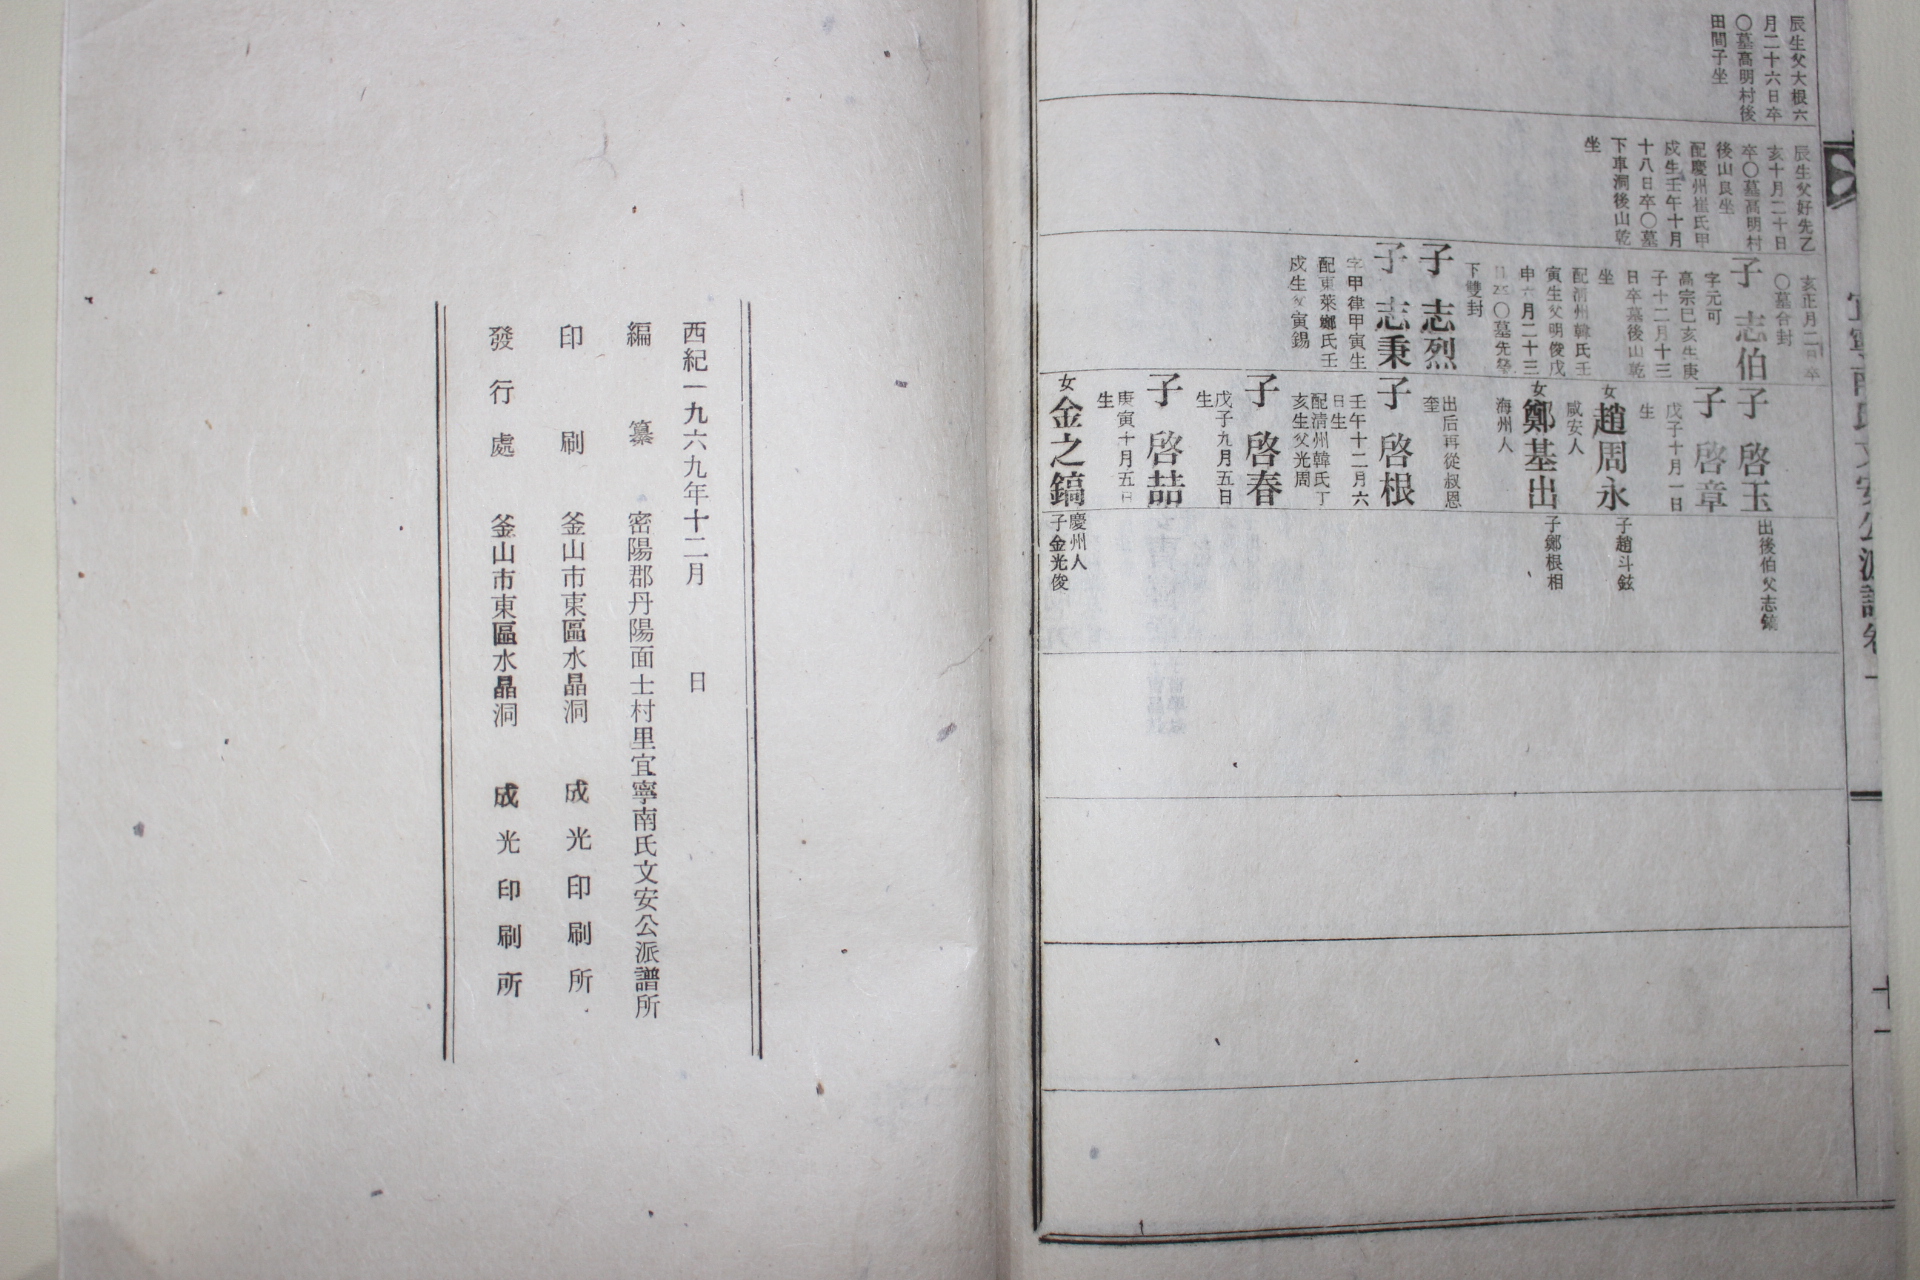 辰生父大根六
月二十六日卒
〇墓高明村後
田間子坐
辰生父好先乙
亥十月二十日
卒〇墓高明村
後山艮坐
配慶州崔氏甲
戌生壬午十月
十八日卒〇墓
下車洞後山乾
坐
亥正月二日卒
〇墓合封
子 志伯
字元可
高宗己亥生庚
子十二月十三
日卒墓後山乾
坐
配淸州韓氏壬
寅生父明俊戊
申六月二十三
日卒〇墓先塋
下雙封
子 志烈
子 志秉
字甲律甲寅生
配東萊鄭氏壬
戌生父寅錫
子 啓玉
出後伯父志
子 啓章
戊子十月一日
生
女 趙周永
咸安人
子趙斗鉉
女 鄭基出
海州人
子鄭根相
出后再從叔恩
奎
子 啓根
壬午十二月六
日生
配淸州韓氏丁
亥生父光周
子 啓春
戊子九月五日
生
子 啓喆
庚寅十月五日
生
女 金之鎬
慶州人
子金光俊
宜寧南氏文安公派譜卷一
十一
西紀一九六九年十二月 日
編 纂 密陽郡丹陽面士村里宜寧南氏文安公派譜所
印 刷 釜山市東區水晶洞 成光印刷所
發行處 釜山市東區水晶洞 成光印刷所